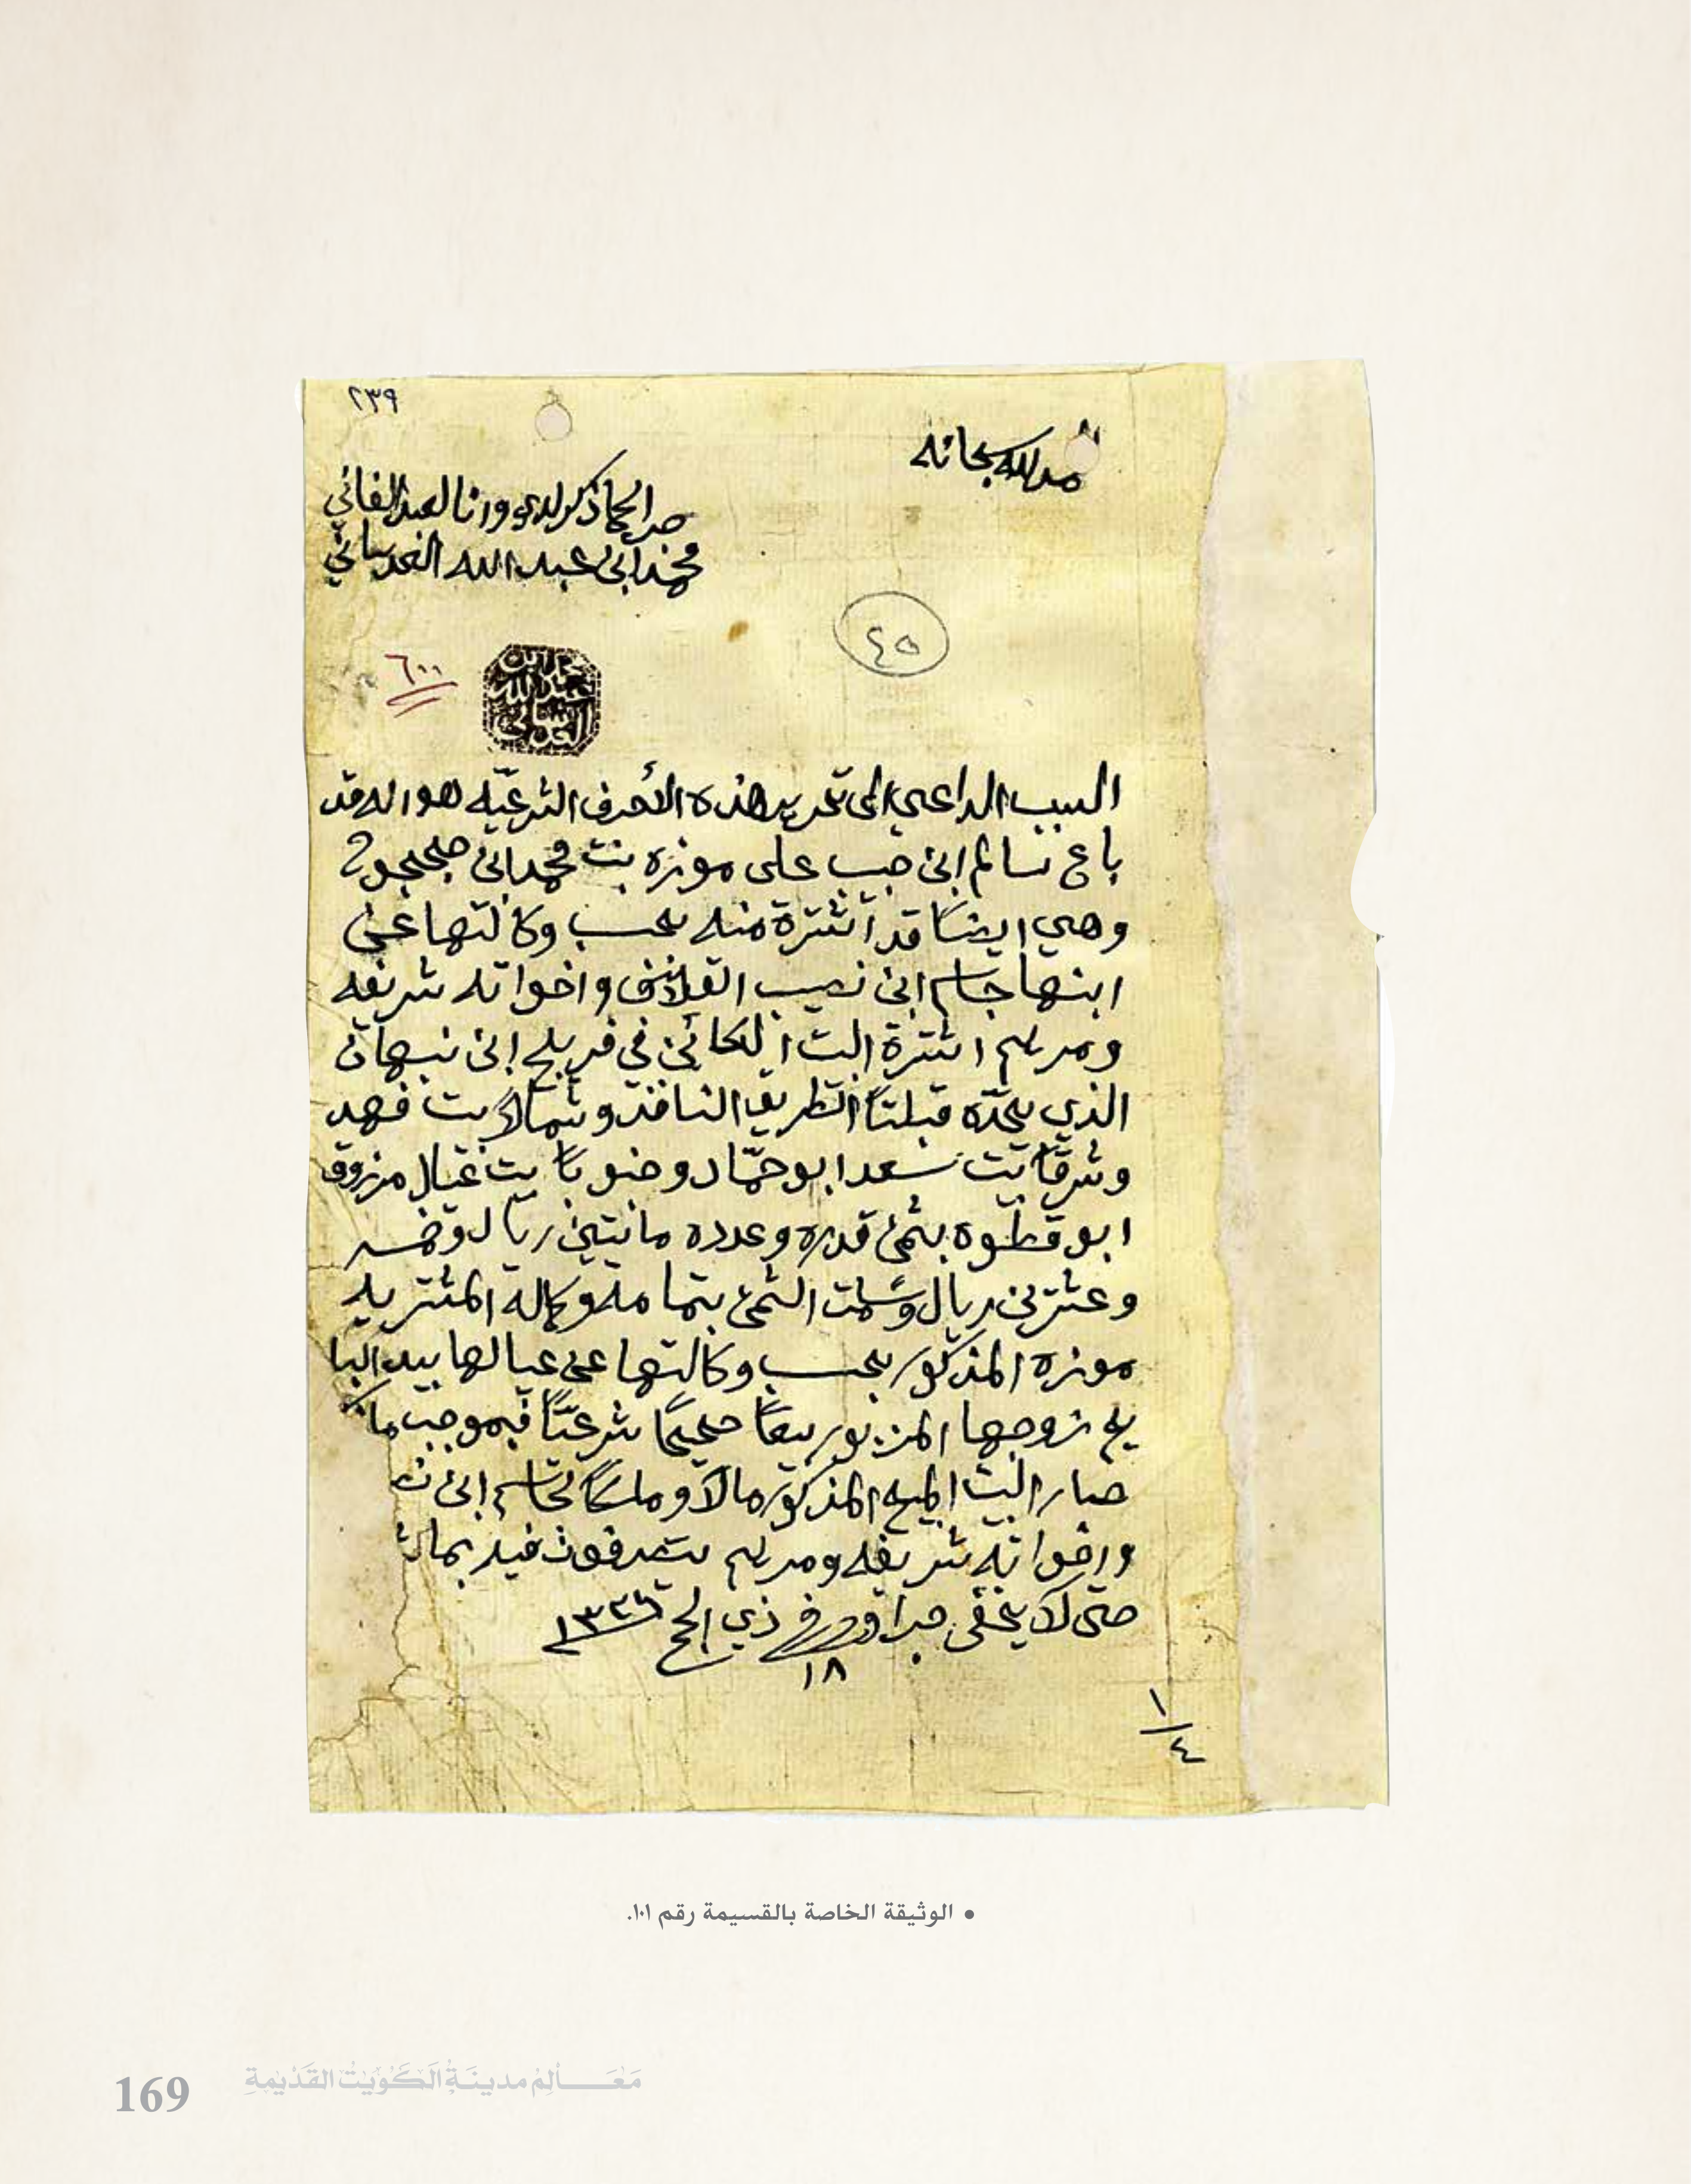 ٢٣٩
الحمد لله سبحانه
صدر الحكا ذكر لدي وانا العبد الفاني
محمد ابن عبد الله العدساني
٤٥
٦٠٠
محمد ابن
عبد الله
العدساني
السبب الداعي الى تحرير هذه الأحرف الشرعيّه هو انه قد
باع سالم ابن على موزه بنت محمد ابن
وهي ايضاً قد اشترة منه بحسب وكالتها عن
ابنها جاسم ابن نصيب القلاف واخواته شريفه
ومريم اشترة البيت الكائن في فريج ابن نبهان
الذي يحدّه قبلتاً الطريق النافذ وشمالاً بيت فهد
وشرقاً بيت سعد ابو حمّاد وجنوباً بيت عيال مرزوق
ابو قطوه بثمن قدره وعدده مائتين ريال وخمسه
وعشرين ريال وسلمت الثمن بتمامه وكماله المشتريه
موزه المذكور بحسب وكالتها عن عيالها بيد البا
يع زوجها المزبور بيعاً صحيحاً شرعيّاً فبموجب ما ذكر
صار البيت المبيع المذكور مالاً وملكاً لجاسم ابن
واخواته شريفه ومريم يتصرفون فيه بما
حتى لا يخفى جرا وحرر في ذي الحج ١٣٣٦
١٨
١
٤
• الوثيقة الخاصة بالقسيمة رقم ١٠١.
169 مَعَالِمْ مدينَةُ الكُوَيْتْ القَدْيمةِ